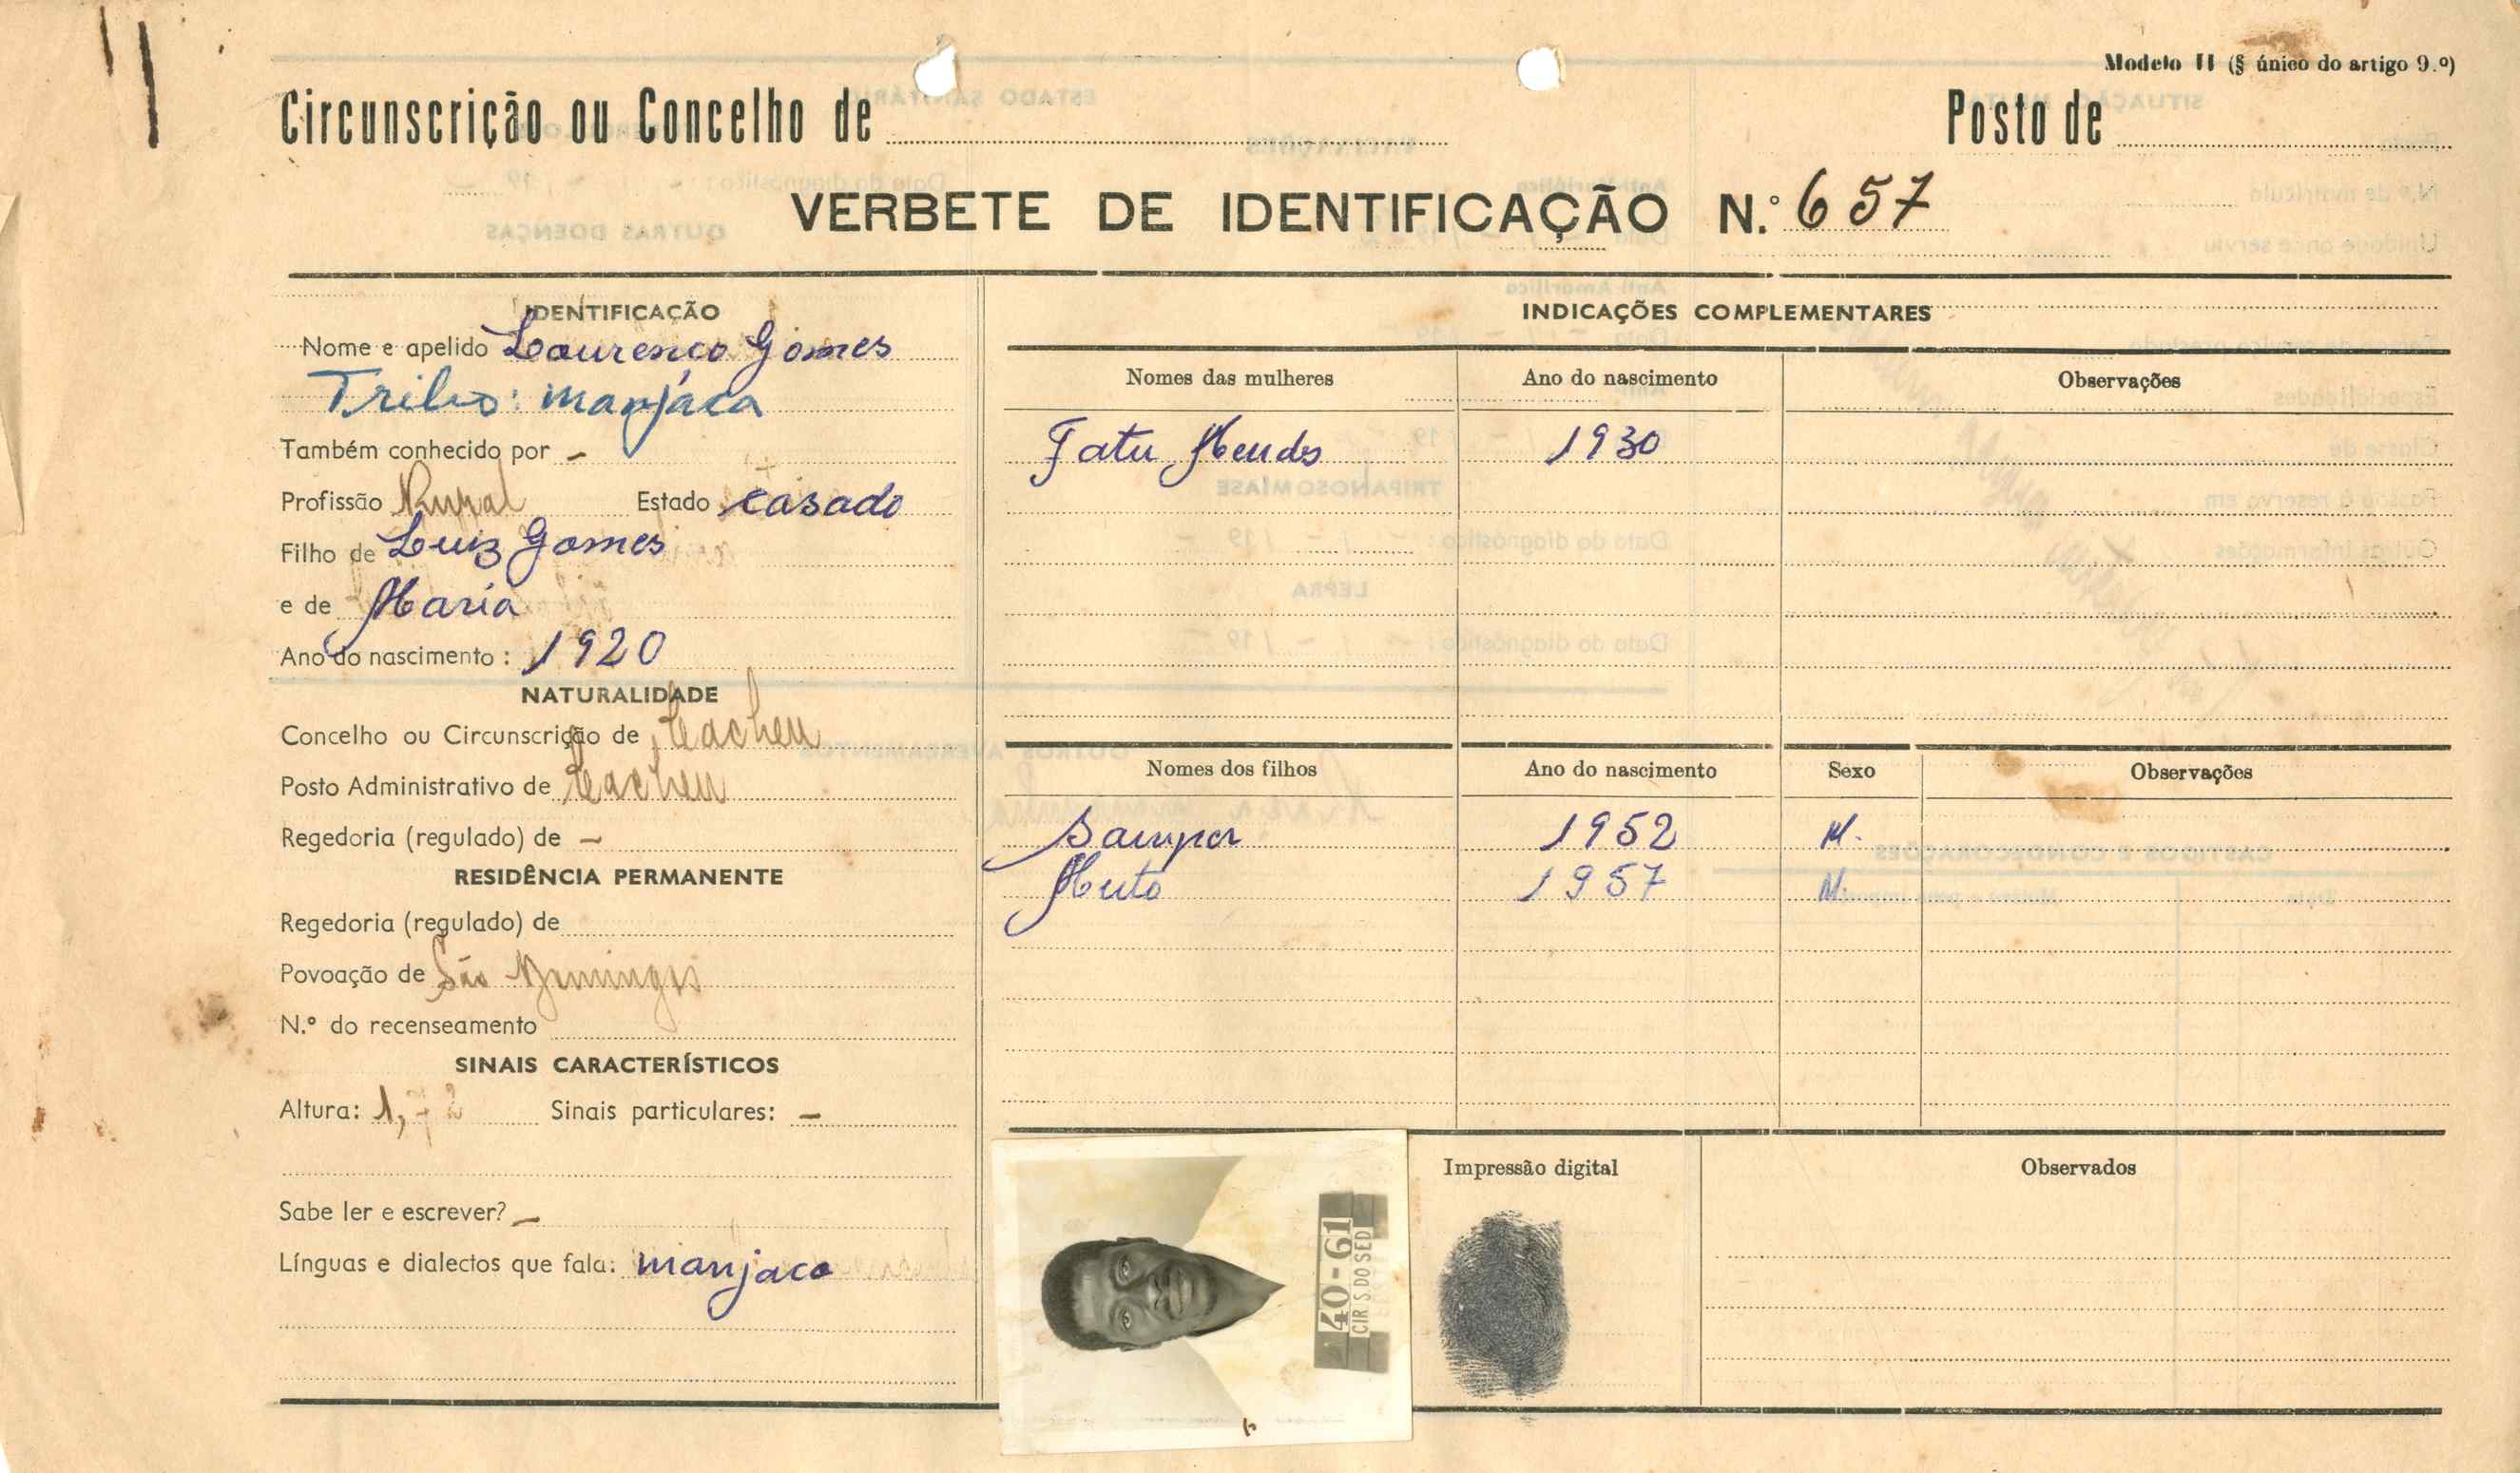 Modelo II (§ único do artigo 9.º)
Circunscrição ou Concelho de
Posto de
VERBETE DE IDENTIFICAÇÃO N.º 657
IDENTIFICAÇÃO
Nome e apelido Lourenço Gomes
Tribo: manjaca
Também conhecido por -
Profissão Rural Estado casado
Filho de Luiz Gomes
e de Maria
Ano do nascimento: 1920
NATURALIDADE
Concelho ou Circunscrição de Cacheu
Posto Administrativo de Cacheu
Regedoria (regulado) de -
RESIDÊNCIA PERMANENTE
Regedoria (regulado) de
Povoação de São Domingos
N.º do recenseamento
SINAIS CARACTERÍSTICOS
Altura: 1,72 Sinais particulares: -
Sabe ler e escrever? -
Línguas e dialectos que fala: manjaco
INDICAÇÕES COMPLEMENTARES
Nomes das mulheres Ano do nascimento Observações
Fatu Mendes 1930
Nomes dos filhos Ano do nascimento Sexo Observações
Samper 1952 M.
Muto 1957 M.
40-61
CIR S. DO SED
Impressão digital
Observados